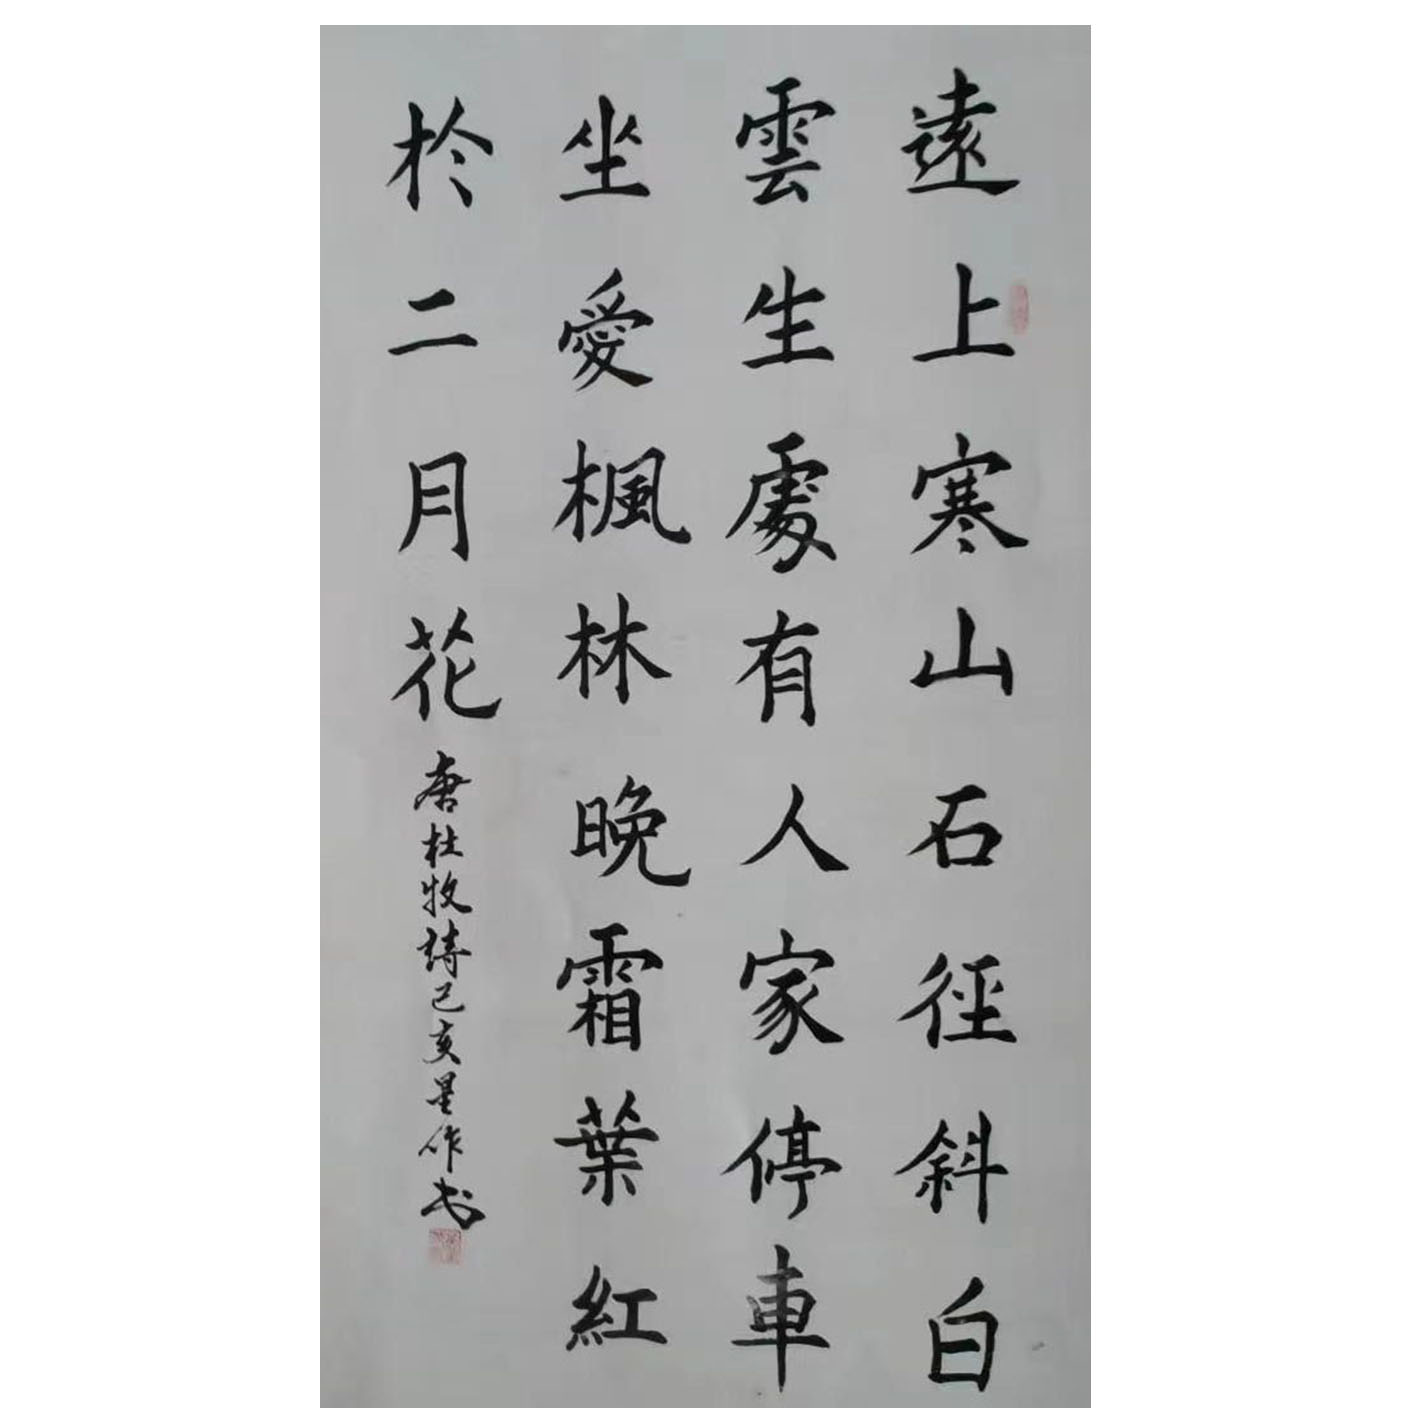 遠上寒山石徑斜白
雲生處有人家停車
坐愛楓林晚霜葉紅
於二月花
唐杜牧詩己亥星作书